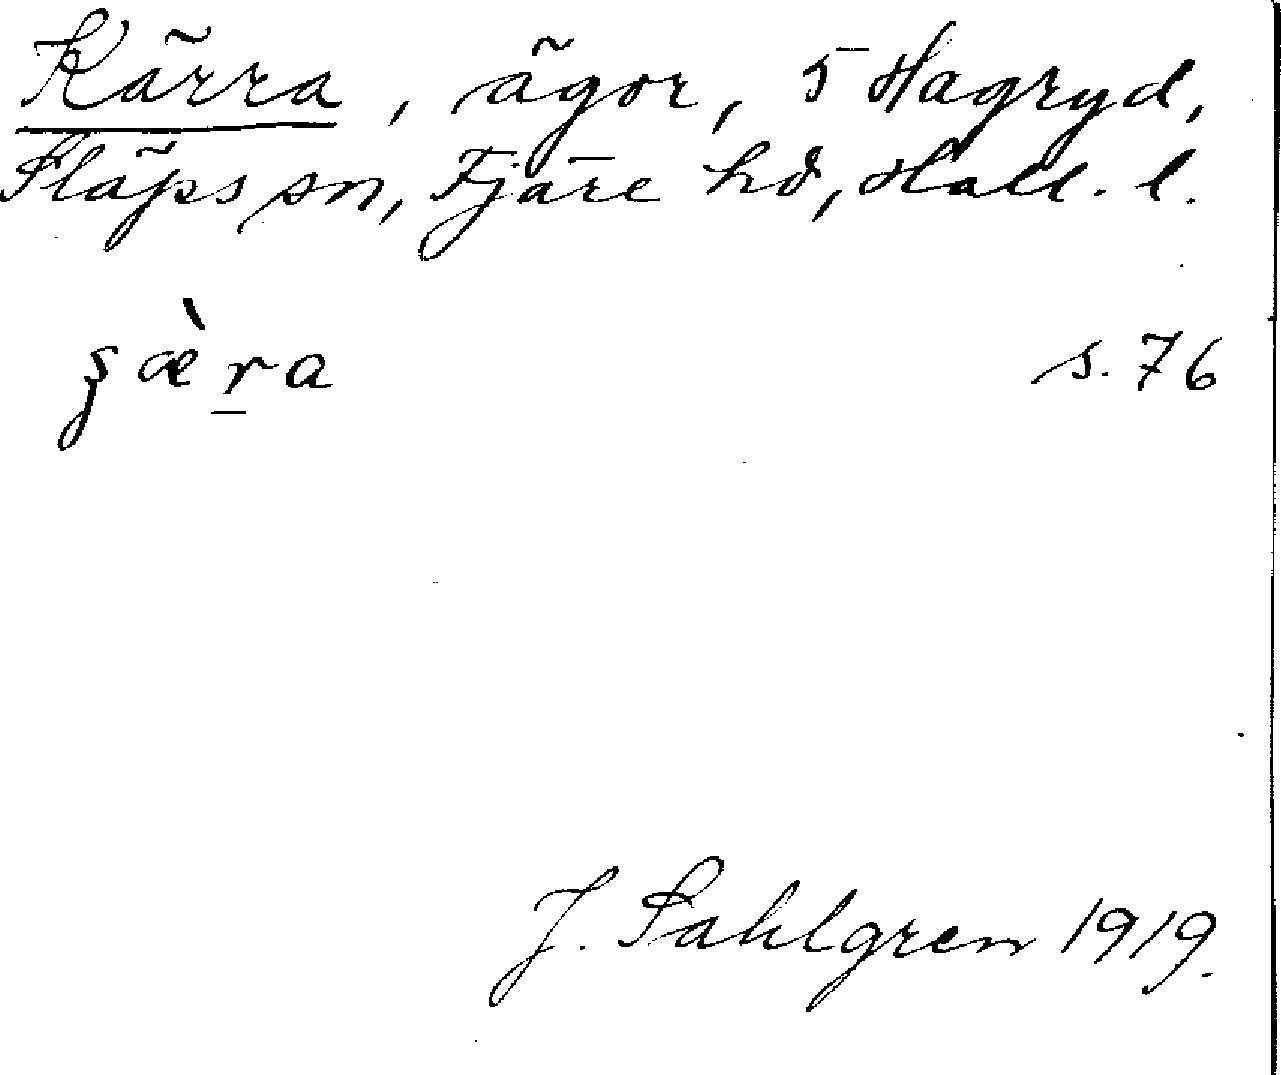 Kärra, ägor, 5 Hagryd,
Släps sn, Fjäre hd, Hall. l.
ʂæ̀r̠a s. 76
J. Sahlgren 1919.